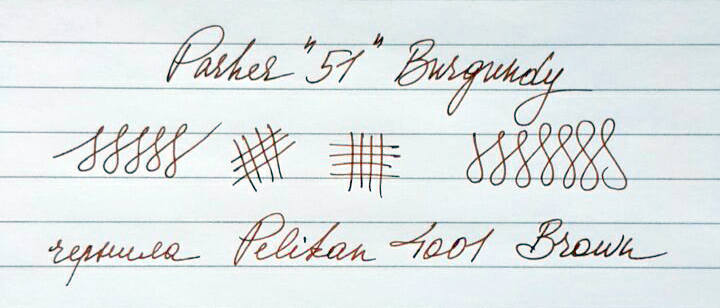 Parker "51" Burgundy
чернила Pelikan 4001 Brown